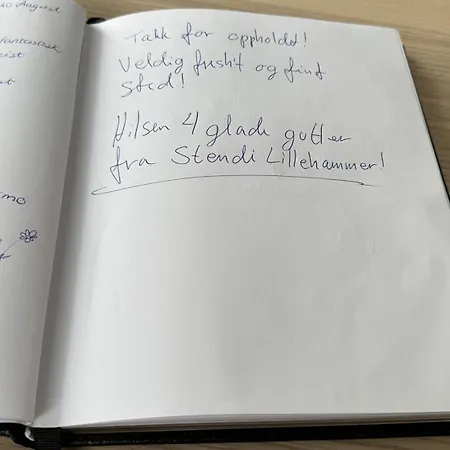 20 August
fantastisk
Takk for oppholdet!
Veldig fresht og fint
sted!
Hilsen 4 glade gutter
fra Stendi Lillehammer!